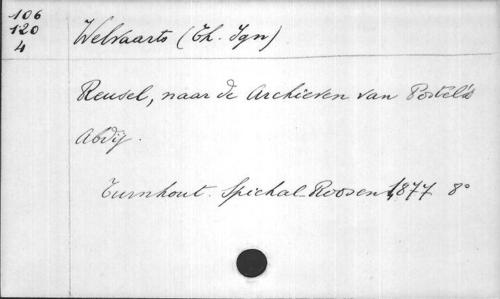 106
120
4
Welvaarts (Th. Ign)
Reusel, naar de Archieven van Postel's
Abdij.
Turnhout. Spichal-Roosen 1877 8°